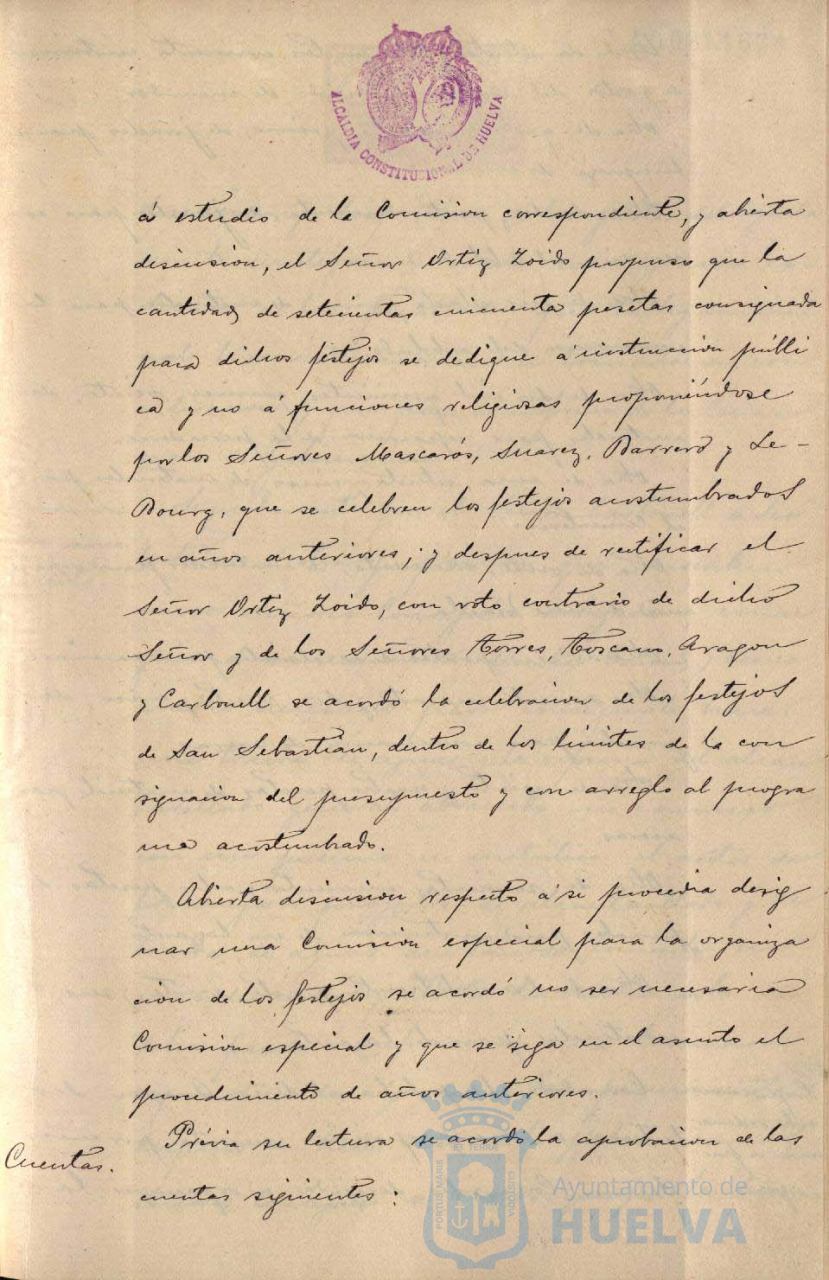 ALCALDIA CONSTITUCIONAL DE HUELVA
á estudio de la Comision correspondiente, y abierta
discusion, el Señor Ortiz Zoido propuso que la
cantidad de setecientas cincuenta pesetas consignada
para dichos festejos se dedique á instruccion públi
ca y no á funciones religiosas proponiéndose
por los Señores Mascarós, Suarez, Barrero y Le-
Bourg, que se celebren los festejos acostumbrados
en años anteriores; y despues de rectificar el
Señor Ortiz Zoido, con voto contrario de dicho
Señor y de los Señores Torres, Toscano, Aragon
y Carbonell se acordó la celebracion de los festejos
de San Sebastian, dentro de los limites de la con
signacion del presupuesto y con arreglo al progra
ma acostumbrado.
Abierta discusion respecto á si procedia desig
nar una Comision especial para la organiza
cion de los festejos se acordó no ser necesaria
Comision especial y que se siga en el asunto el
procedimiento de años anteriores.
Cuentas.
Prévia su lectura se acordó la aprobacion de las
cuentas siguientes:
PORTUS MARIS
CUSTODIA
Ayuntamiento de
HUELVA